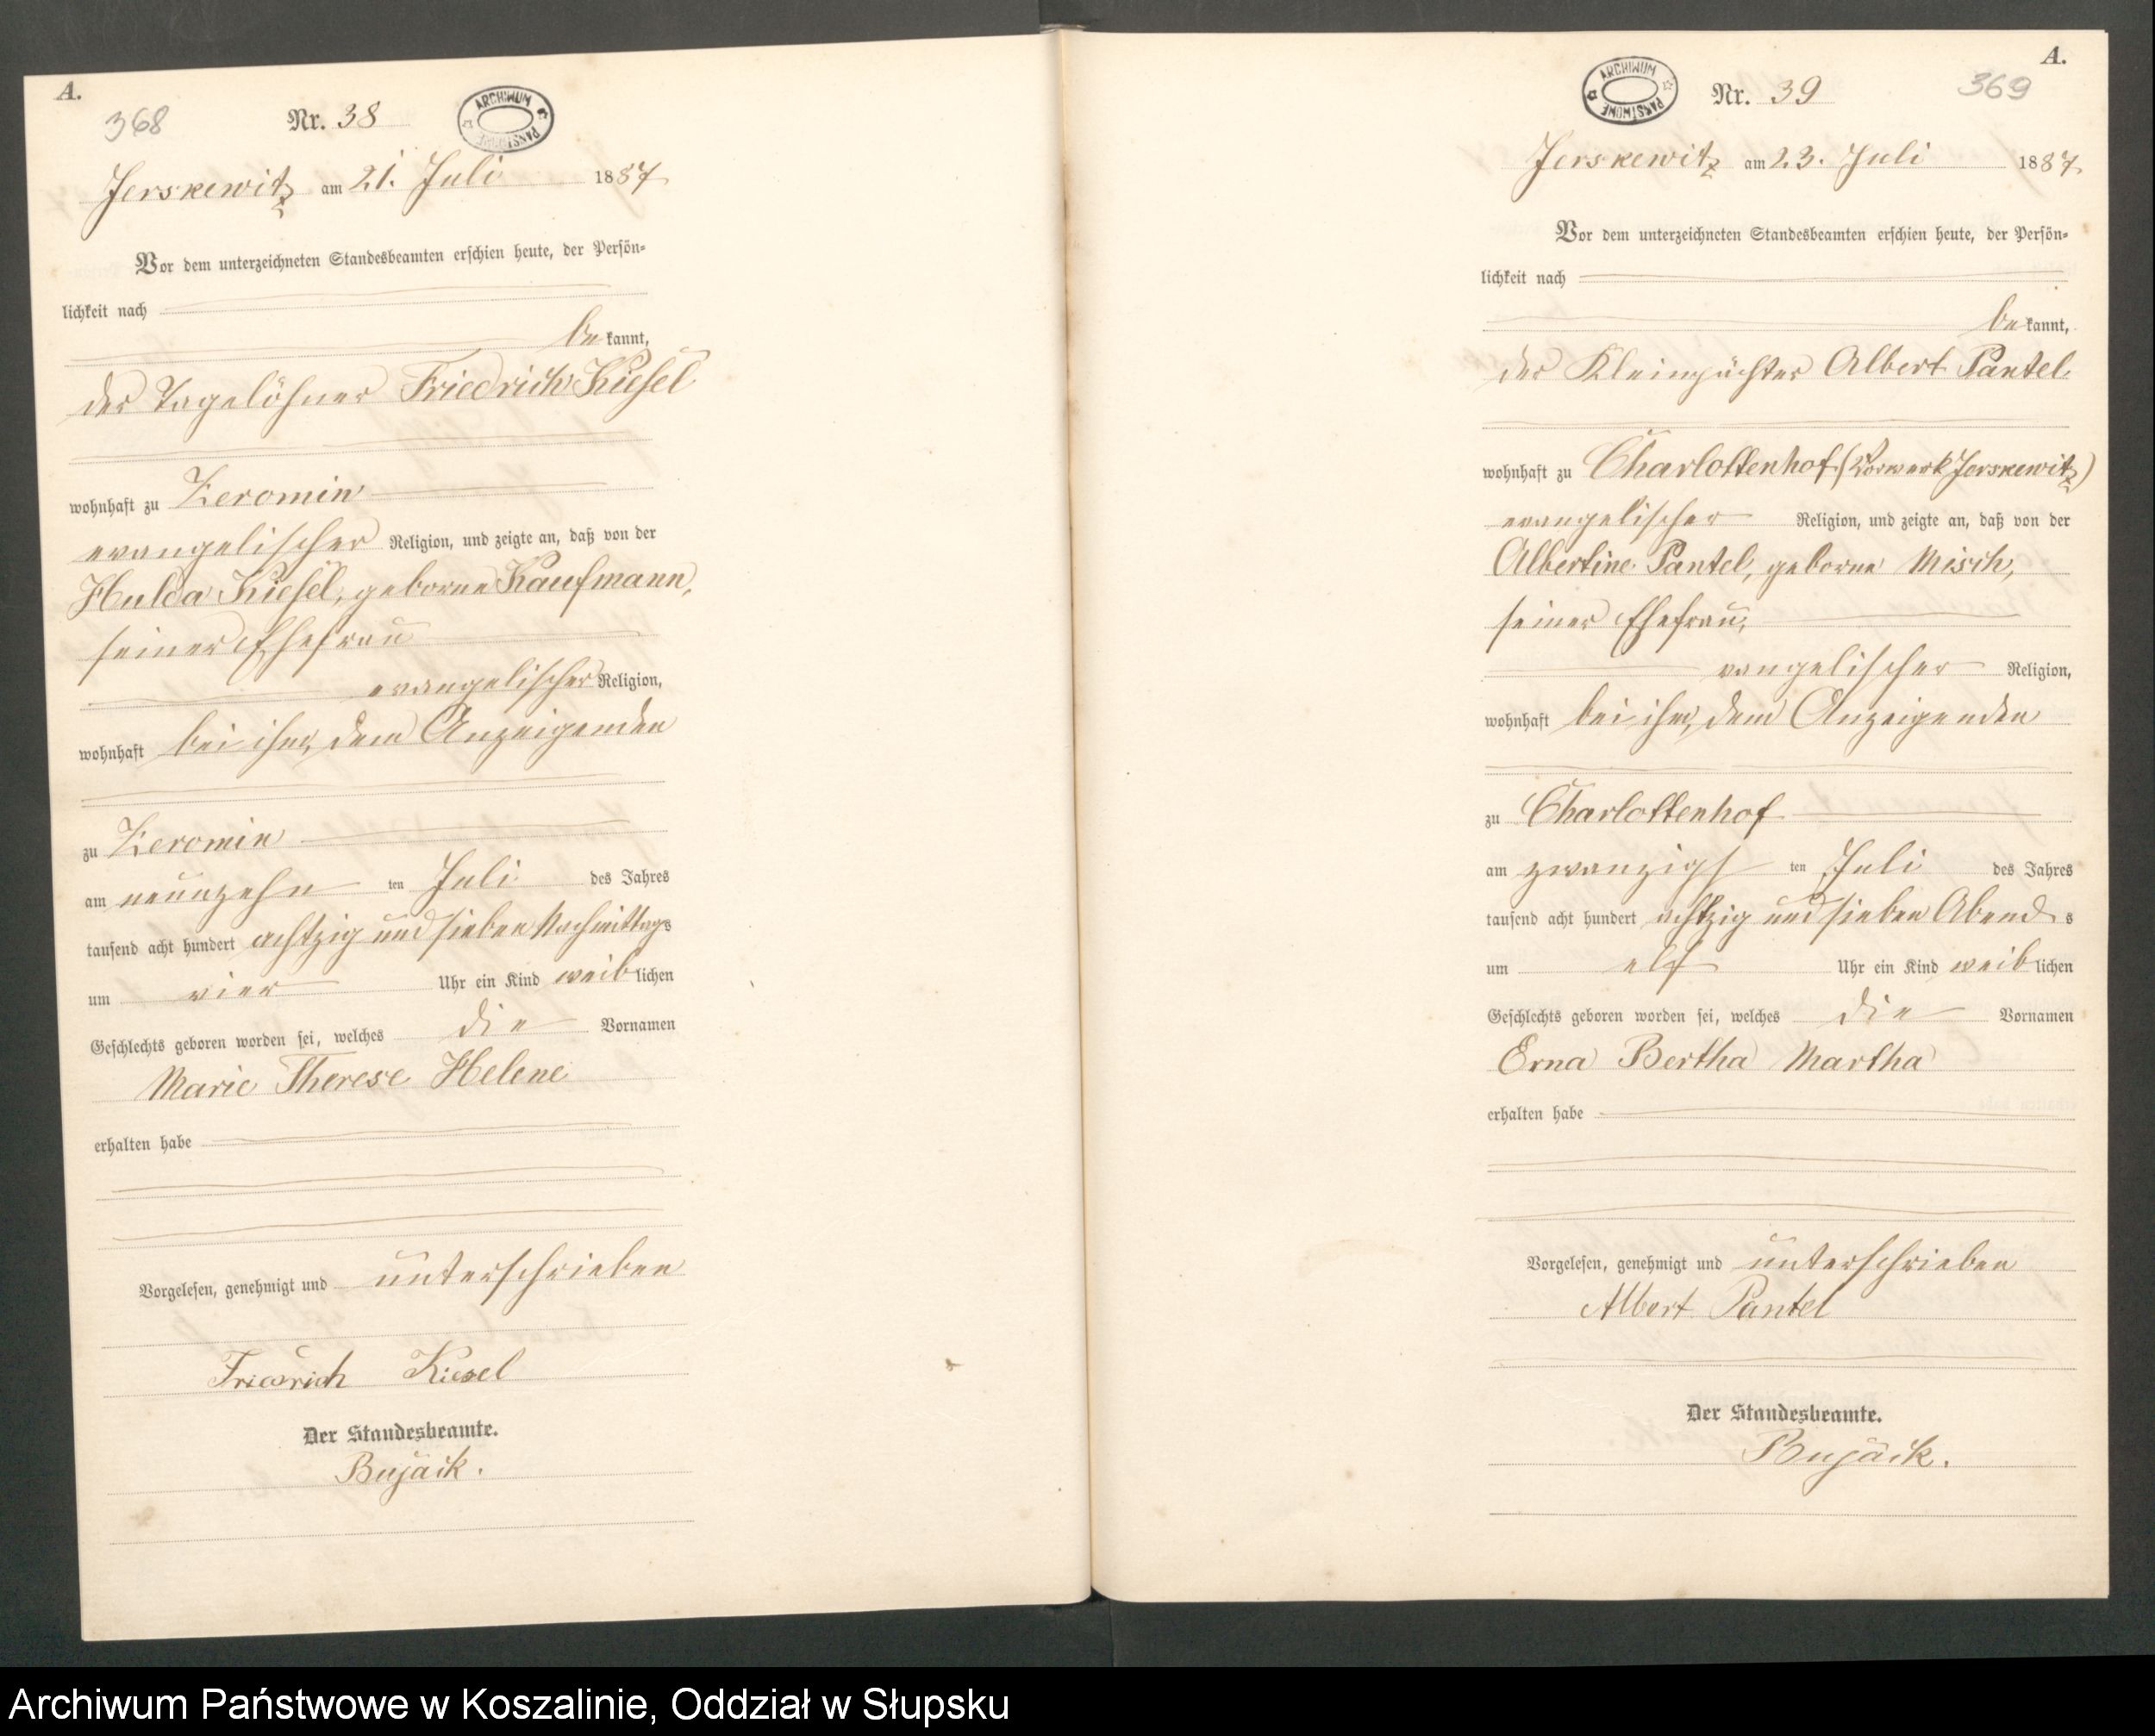 A.
368
Nr. 38
ARCHIWUM PAŃSTWOWE
Jerskewitz am 21. Juli 1887
Vor dem unterzeichneten Standesbeamten erschien heute, der Persön-
lichkeit nach
be kannt,
der Tagelöhner Friedrich Kiesel
wohnhaft zu Zeromin
evangelischer Religion, und zeigte an, daß von der
Hulda Kiesel, geborne Kaufmann,
seiner Ehefrau
evangelischer Religion,
wohnhaft bei ihm, dem Anzeigenden
zu Zeromin
am neunzehn ten Juli des Jahres
tausend acht hundert achtzig und sieben Nachmittags
um vier Uhr ein Kind weiblichen
Geschlechts geboren worden sei, welches die Vornamen
Marie Therese Helene
erhalten habe
Vorgelesen, genehmigt und unterschrieben
Friedrich Kiesel
Der Standesbeamte.
Bujäck.
A.
369
ARCHIWUM PAŃSTWOWE
Nr. 39
Jerskewitz am 23. Juli 1887
Vor dem unterzeichneten Standesbeamten erschien heute, der Persön-
lichkeit nach
be kannt,
der Kleinpächter Albert Pantel
wohnhaft zu Charlottenhof (Vorwerk Jerskewitz)
evangelischer Religion, und zeigte an, daß von der
Albertine Pantel, geborne Misch,
seiner Ehefrau,
evangelischer Religion,
wohnhaft bei ihm, dem Anzeigenden
zu Charlottenhof
am zwanzigs ten Juli des Jahres
tausend acht hundert achtzig und sieben Abends
um elf Uhr ein Kind weiblichen
Geschlechts geboren worden sei, welches die Vornamen
Erna Bertha Martha
erhalten habe
Vorgelesen, genehmigt und unterschrieben
Albert Pantel
Der Standesbeamte.
Bujäck.
Archiwum Państwowe w Koszalinie, Oddział w Słupsku